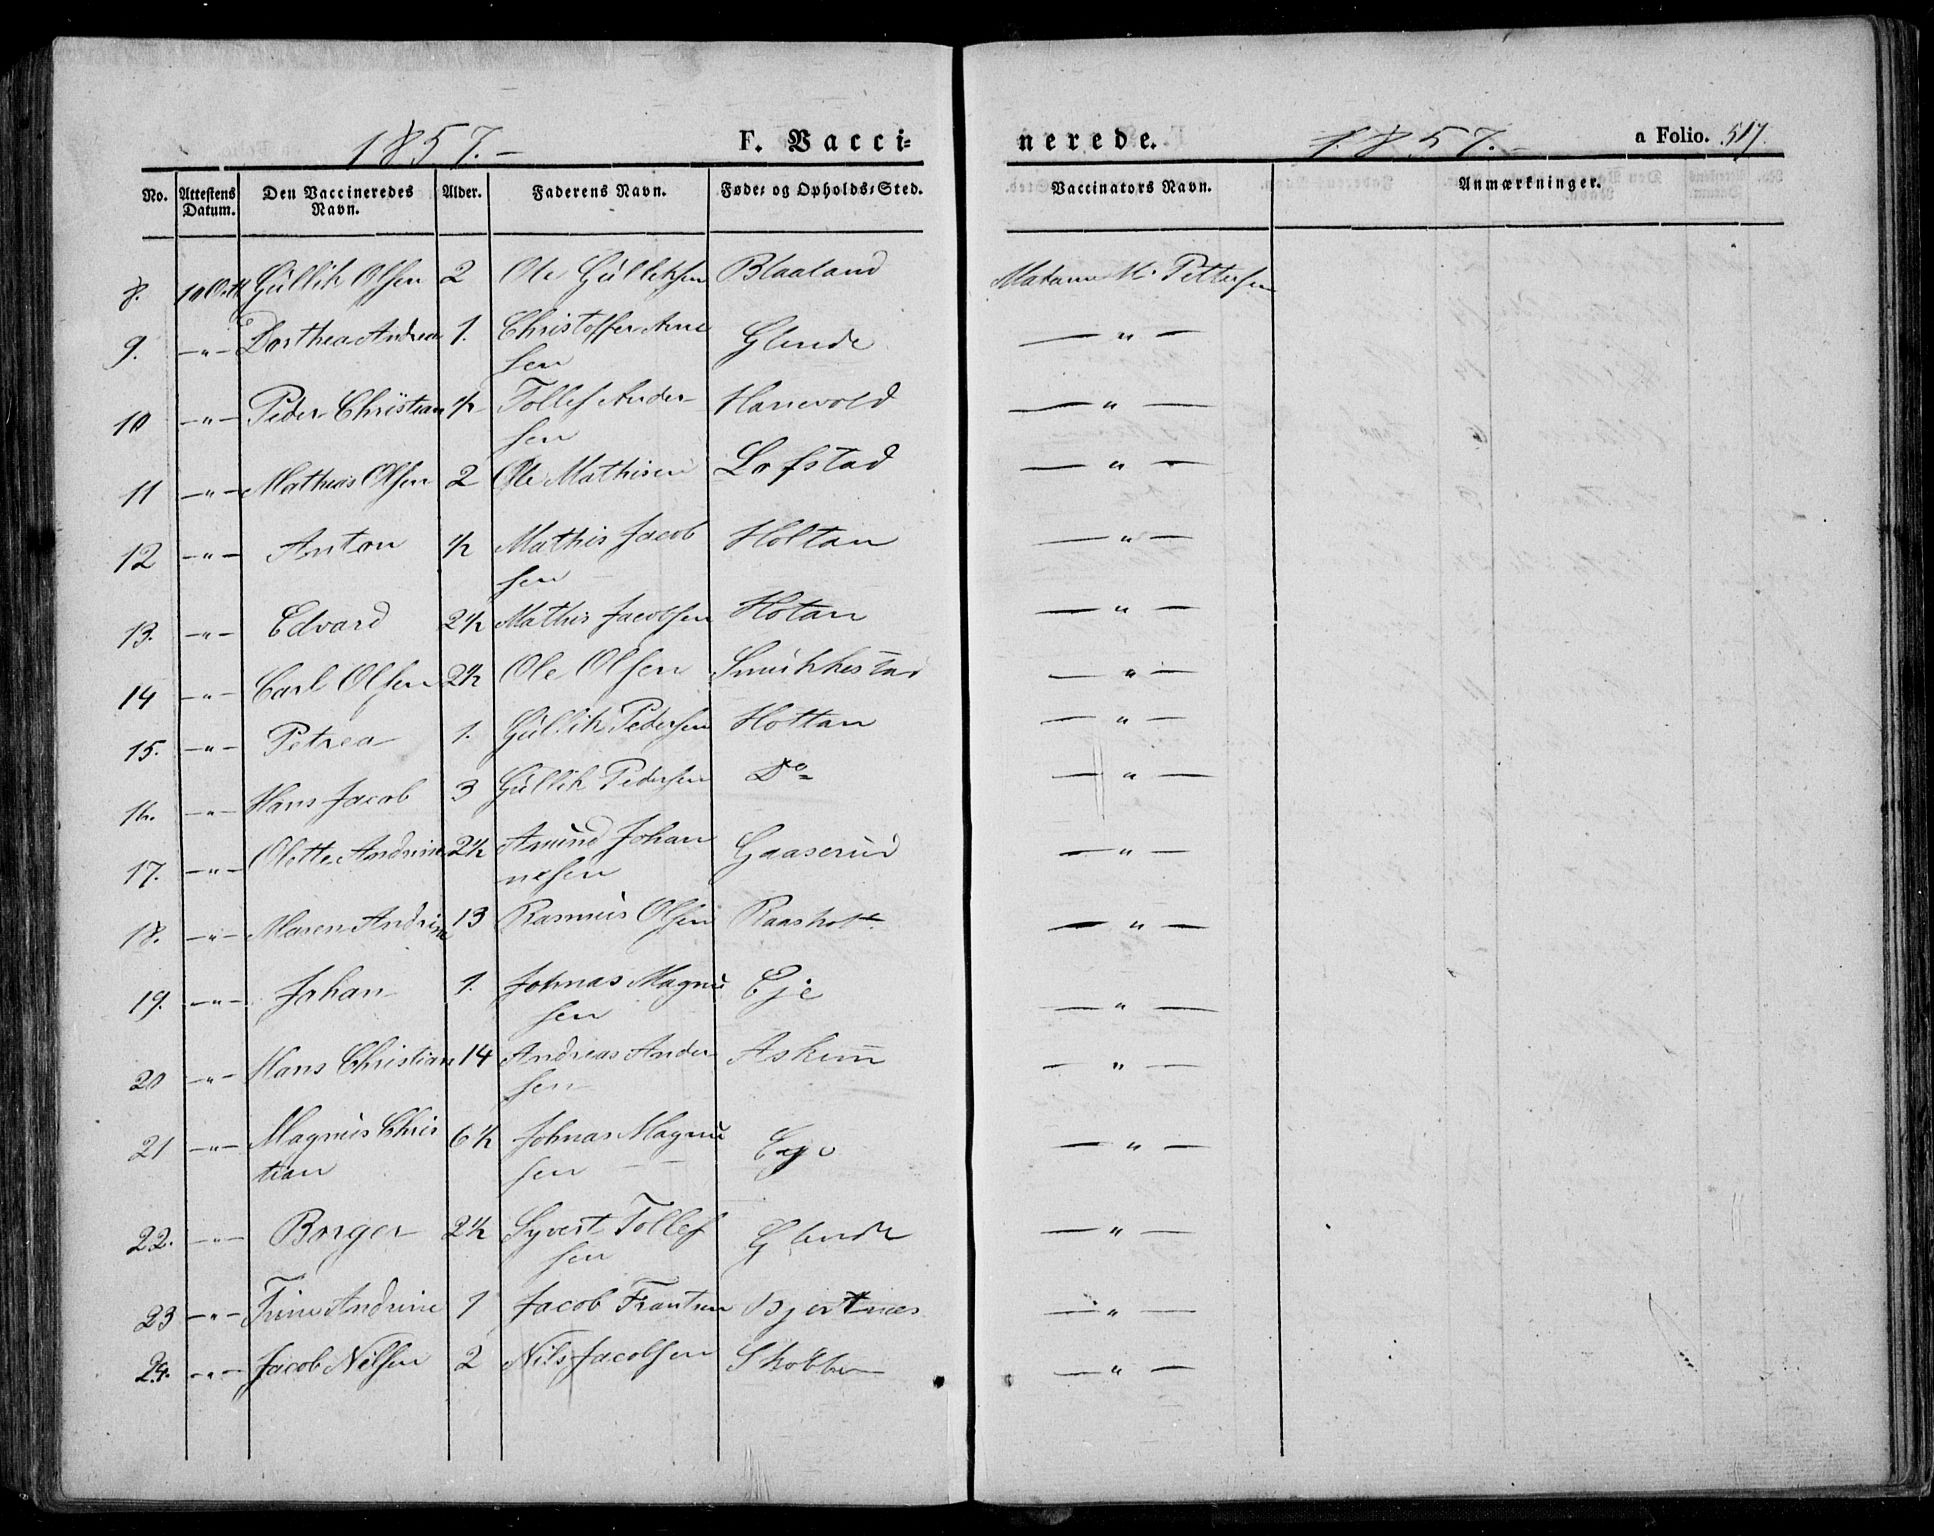 1857.- F. Vacci= nerede. 1857.- a Folio. 517.
No. Attestens Datum. Den Vaccineredes Navn. Alder. Faderens Navn. Føde= og Opholds=Sted. Vaccinators Navn. Anmærkninger.
8. 10 Gullik Olsen 2 Ole Gulliksen Blaaland Madame M. Pettersen
9. -"- Dorthea Andrea 1. Christoffer Arne
sen Glende -"-
10 -"- Peder Christian ½ Tollef Ander-
sen Hanevold -"-
11 -"- Mathias Olsen 2 Ole Mathisen Lofstad -"-
12 -"- Anton ½ Mathis Jacob
sen Holtan -"-
13. -"- Edvard 2½ Mathis Jacobsen Hotan -"-
14 -"- Carl Olsen 2½ Ole Olsen Smükkestad -"-
15. -"- Petrea 1. Gullik Pedersen Holtan -"-
16. -"- Hans Jacob 3 Gullik Pedersen Do -"-
17. -"- Olotte Andrine 2½ Amund Johan
nesen Gaaserud -"-
18. -"- Maren Andrine 13 Rasmus Olsen Raasholt -"-
19. -"- Johan 1. Johnas Magnu
sen Eje -"-
20 -"- Hans Christian 14 Andreas Ander
sen Askim -"-
21 -"- Magnus Chris
tian 6½ Johnas Magnu
sen Eje -"-
22. -"- Borger 2½ Syvert Tollef
sen Glende -"-
23 -"- Trine Andrine 1 Jacob Frantsen Bjertnæs -"-
24. -"- Jacob Nilsen 2 Nils Jacobsen -"-